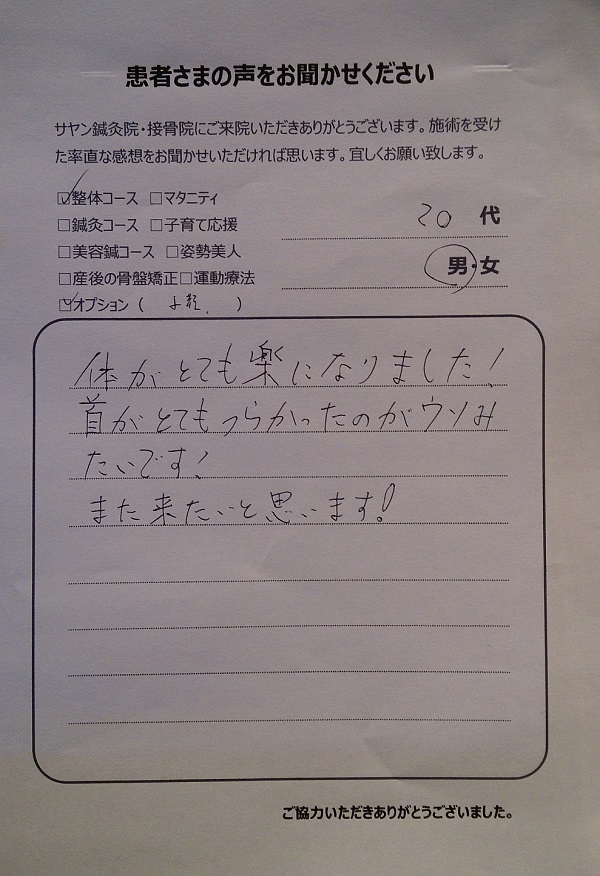 患者さまの声をお聞かせください
サヤン鍼灸院・接骨院にご来院いただきありがとうございます。施術を受け
た率直な感想をお聞かせいただければ思います。宜しくお願い致します。
☑整体コース □マタニティ
□鍼灸コース □子育て応援
□美容鍼コース □姿勢美人
□産後の骨盤矯正□運動療法
☑オプション ( )
20 代
男・女
体がとても楽になりました!
首がとてもつらかったのがウソみ
たいです!
また来たいと思います!
ご協力いただきありがとうございました。